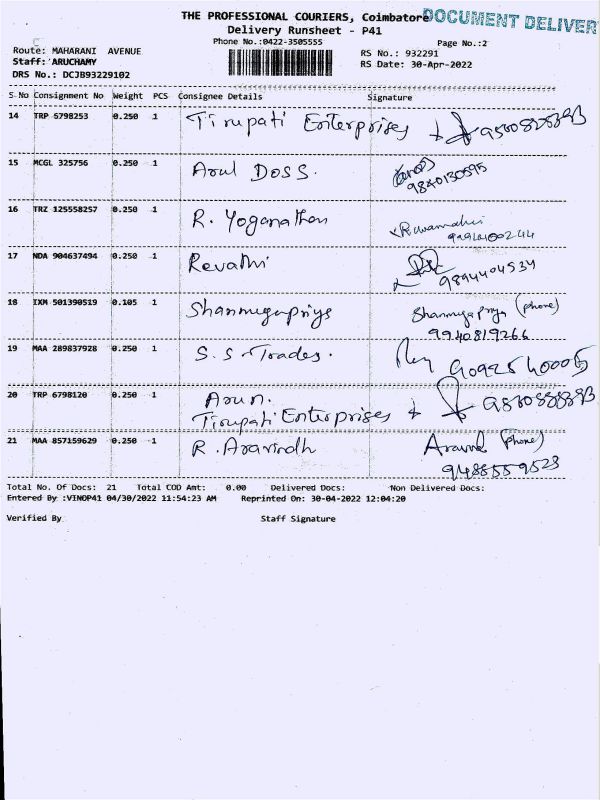 THE PROFESSIONAL COURIERS, Coimbatore DOCUMENT DELIVER
Delivery Runsheet - P41
Phone No.:0422-3505555 Page No.:2
Route: MAHARANI AVENUE RS No.: 932291
Staff: ARUCHAMY RS Date: 30-Apr-2022
DRS No.: DCJB93229102
S.No Consignment No Weight PCS Consignee Details Signature
14 TRP 6798253 0.250 1 Tirupati Enterprises
15 MCGL 325756 0.250 1 Arul Doss. 9840130595
16 TRZ 125558257 0.250 1 R. Yoganathan
17 NDA 904637494 0.250 1 Revathi 9894404534
18 IXM 501390519 0.105 1 Shanmugapriya Shanmuga Priya (phone)
9940819266
19 MAA 289837928 0.250 1 S.S. Trades.
20 TRP 6798120 0.250 1 Arun.
Tirupati Enterprises
21 MAA 857159629 0.250 1 R. Aravindh Aravind (phone)
9488559523
Total No. Of Docs: 21 Total COD Amt: 0.00 Delivered Docs: Non Delivered Docs:
Entered By :VINOP41 04/30/2022 11:54:23 AM Reprinted On: 30-04-2022 12:04:20
Verified By Staff Signature